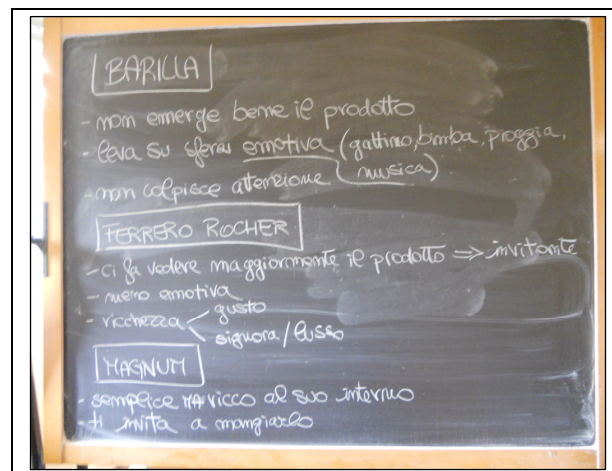 BARILLA
- non emerge bene il prodotto
- leva su sfera emotiva (gattino, bimba, pioggia,
musica)
- non colpisce attenzione
FERRERO ROCHER
- ci fa vedere maggiormente il prodotto => invitante
- meno emotiva
- ricchezza < gusto
signora/lusso
MAGNUM
- semplice MA ricco al suo interno
- ti invita a mangiarlo